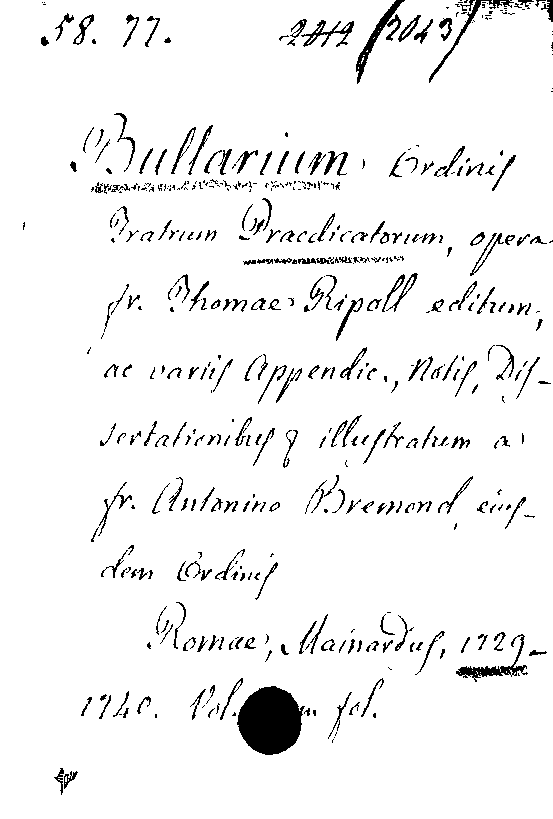 58. 77. 2042 /2043/
Bullarium Ordinis
Fratrum Praedicatorum, opera
fr. Thomae Ripoll editum,
ac variis Appendic., Notis, Dis-
sertationibusq illustratum a
fr. Antonino Bremond, eius-
dem Ordinis
Romae, Mainardus, 1729-
1740. Vol. fol.